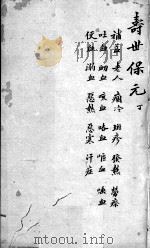 壽世保元 丁
補益 老人 痼冷 斑疹 發熱 勞瘵
吐血 衄血 咳血 咯血 血 血
便血 溺血 惡熱 惡寒 汗症